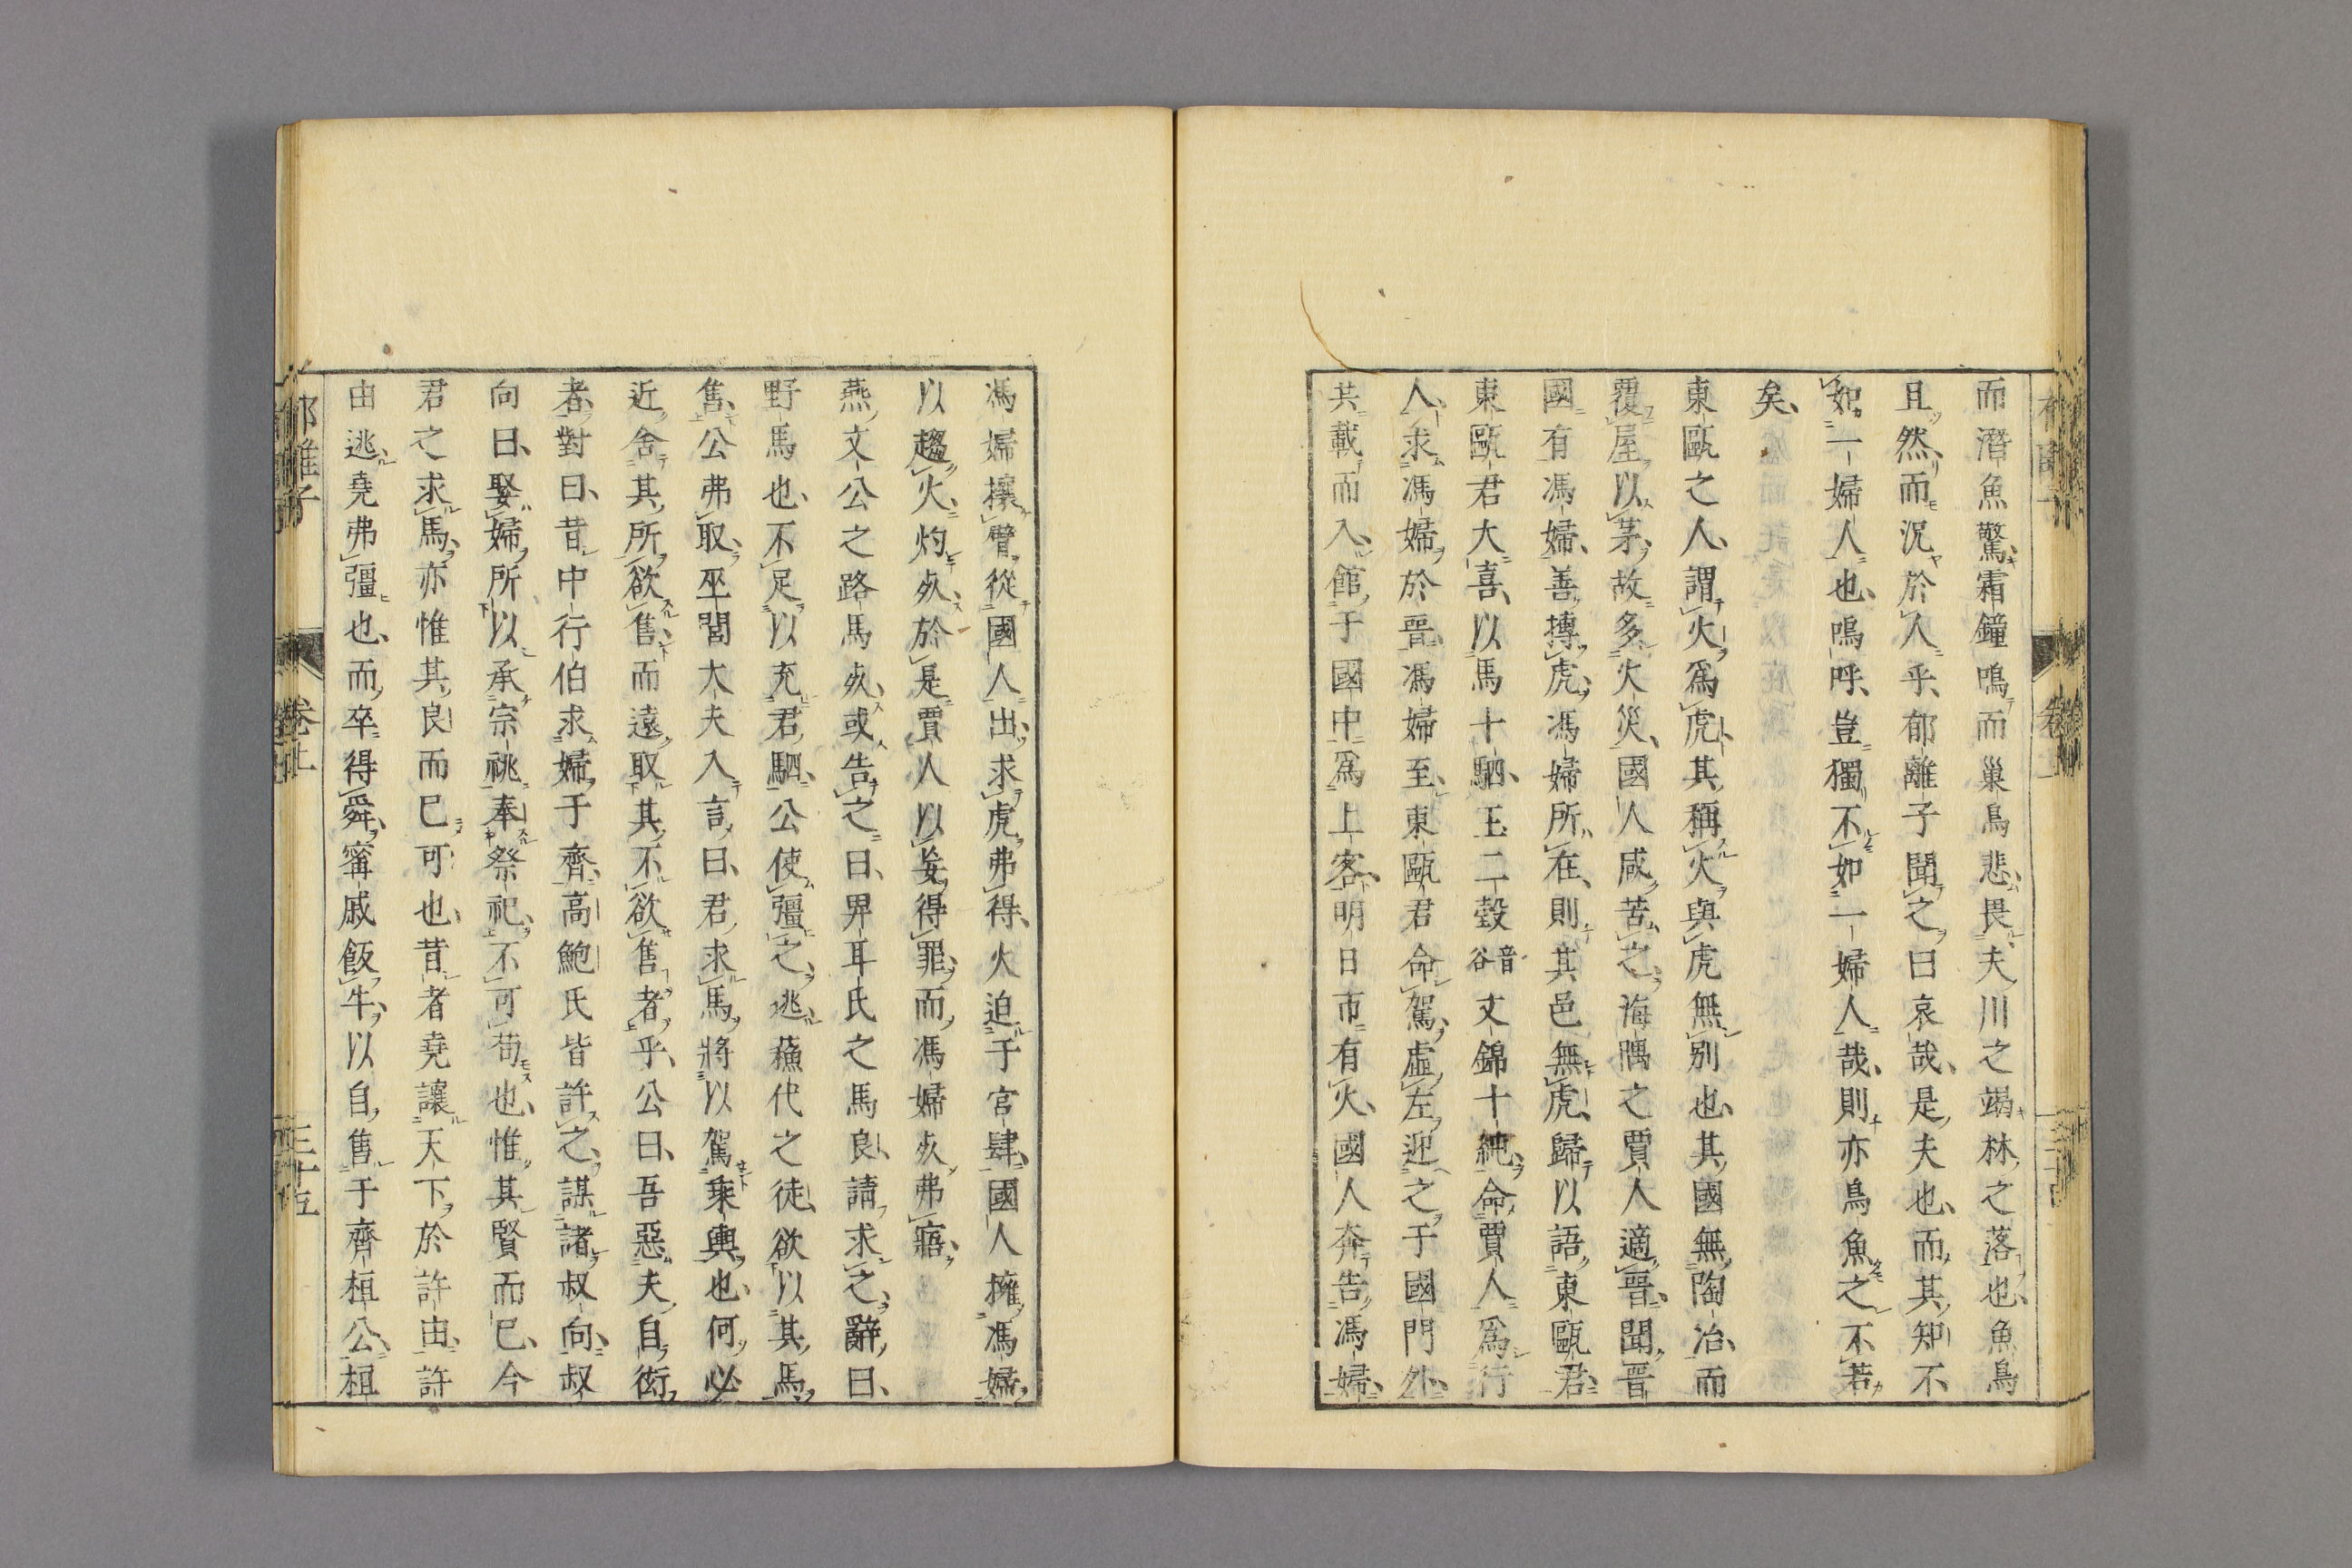 而潛魚驚霜鐘鳴而巢鳥悲畏夫川之竭林之落也魚鳥
且然而況於人乎郁離子聞之曰哀哉是夫也而其知不
如一婦人也嗚呼豈獨不如一婦人哉則亦鳥魚之不若
矣
東甌之人謂火爲虎其稱火與虎無別也其國無陶冶而
覆屋以茅故多火災國人咸苦之海隅之賈人適晉聞晉
國有馮婦善搏虎馮婦所在則其邑無虎歸以語東甌君
東甌君大喜以馬十駟玉二瑴音谷文錦十純命賈人爲行
人求馮婦於晉馮婦至東甌君命駕虛左迎之于國門外
共載而入館于國中爲上客明日市有火國人奔告馮婦
馮婦攘臂從國人出求虎弗得火迫于宮肆國人擁馮婦
以趨火灼死於是賈人以妄得罪而馮婦死弗寤
燕文公之路馬死或告之曰畀耳氏之馬良請求之辭曰
野馬也不足以充君駟公使彊之逃蘓代之徒欲以其馬
售公弗取巫閭大夫入言曰君求馬將以駕乘輿也何必
近舍其所欲售而遠取其不欲售者乎公曰吾惡夫自衒
者對曰昔中行伯求婦于齊高鮑氏皆許之謀諸叔向叔
向曰娶婦所以承宗祧奉祭祀不可苟也惟其賢而已今
君之求馬亦惟其良而已可也昔者堯讓天下於許由許
由逃堯弗彊也而卒得舜甯戚飯牛以自售于齊桓公桓
郁離子 卷上 三十五